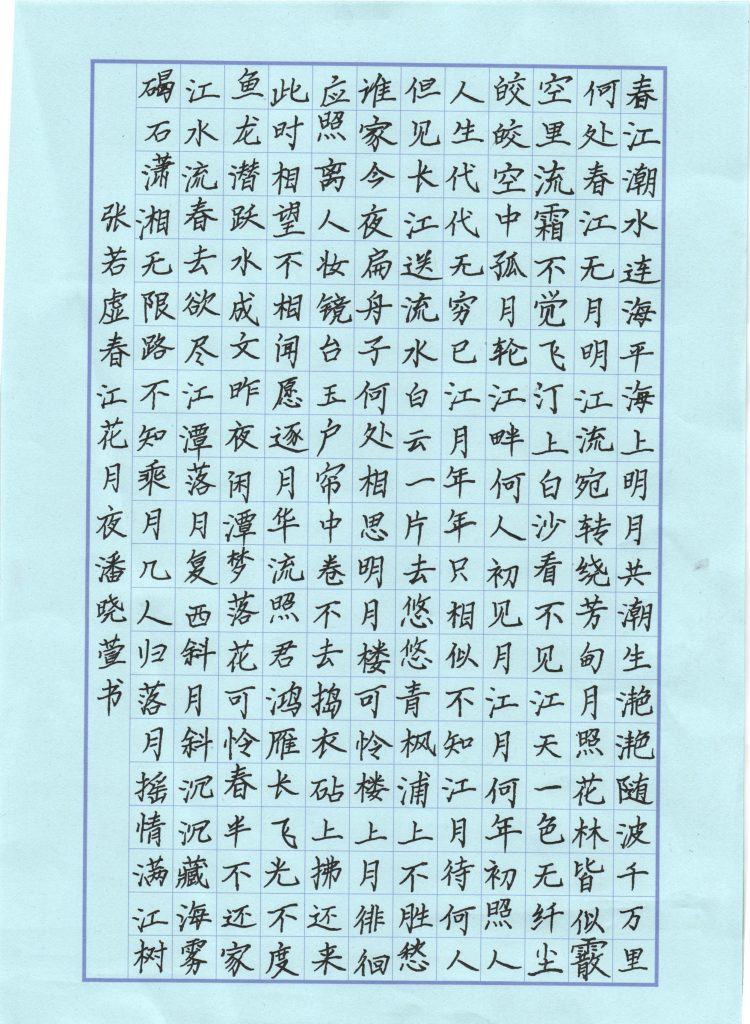 春江潮水连海平海上明月共潮生滟滟随波千万里
何处春江无月明江流宛转绕芳甸月照花林皆似霰
空里流霜不觉飞汀上白沙看不见江天一色无纤尘
皎皎空中孤月轮江畔何人初见月江月何年初照人
人生代代无穷已江月年年只相似不知江月待何人
但见长江送流水白云一片去悠悠青枫浦上不胜愁
谁家今夜扁舟子何处相思明月楼可怜楼上月徘徊
应照离人妆镜台玉户帘中卷不去捣衣砧上拂还来
此时相望不相闻愿逐月华流照君鸿雁长飞光不度
鱼龙潜跃水成文昨夜闲潭梦落花可怜春半不还家
江水流春去欲尽江潭落月复西斜月斜沉沉藏海雾
碣石潇湘无限路不知乘月几人归落月摇情满江树
张若虚春江花月夜潘晓萱书